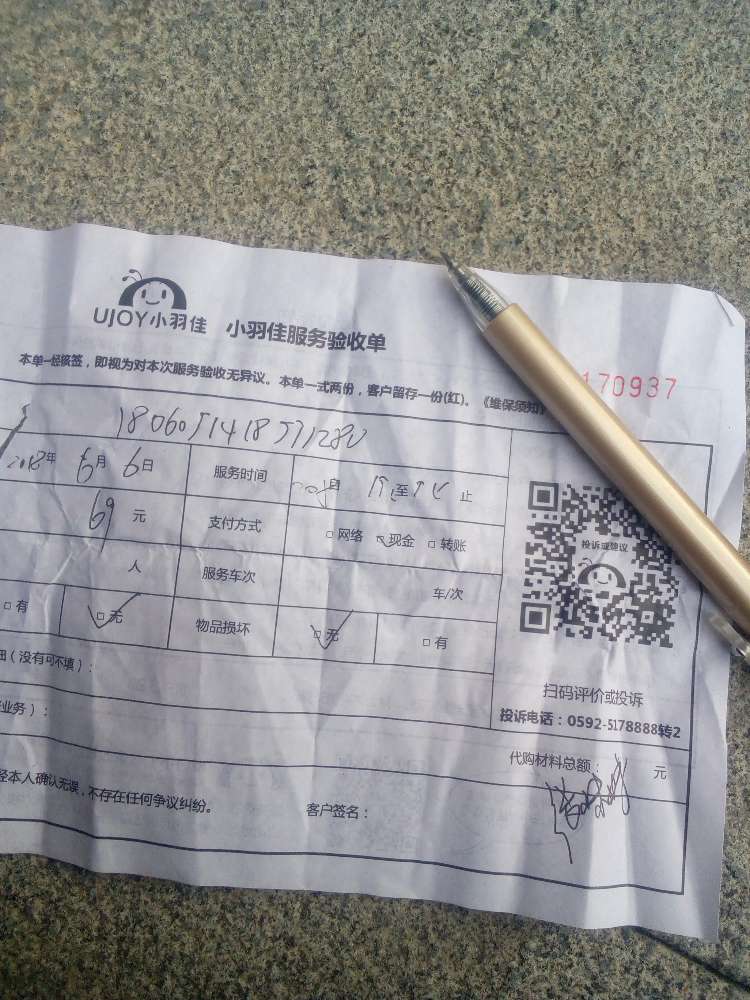 UJOY小羽佳 小羽佳服务验收单
本单一经核签，即视为对本次服务验收无异议。本单一式两份，客户留存一份(红)。《维保须知》
170937
2018年 6月 6日 服务时间 自 至 止
69 元 支付方式 □ 网络 □ 现金 □ 转账
人 服务车次 车/次
□ 有 □ 无 物品损坏 □ 无 □ 有
投诉或建议
扫码评价或投诉
投诉电话：0592-5178888转2
（没有可不填）：
业务）：
代购材料总额： 元
经本人确认无误，不存在任何争议纠纷。 客户签名：